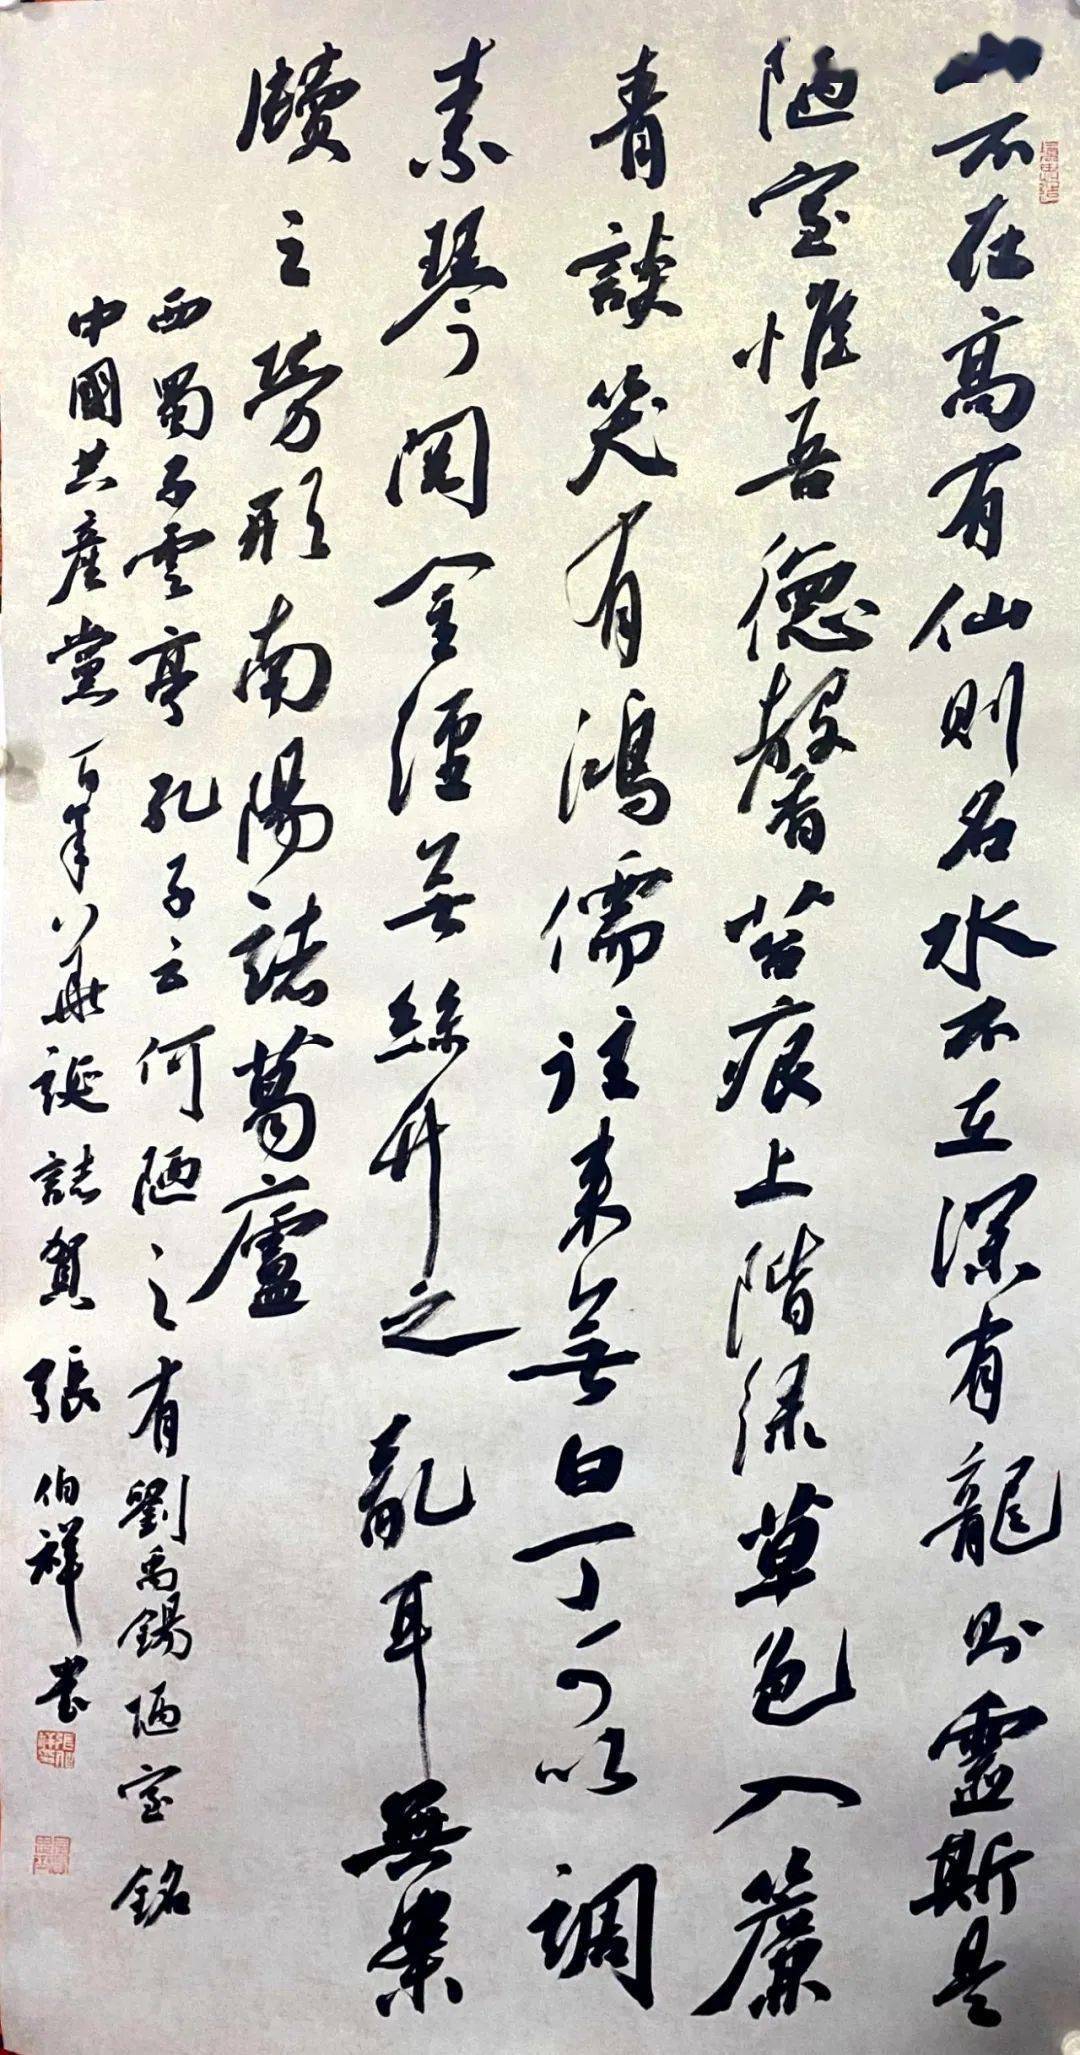 山不在高有仙则名水不在深有龍则靈斯是
陋室惟吾德馨苔痕上階绿草色入簾
青談笑有鴻儒往来無白丁可以調
素琴閱金經無絲竹之亂耳無案
牘之勞形南陽諸葛廬
西蜀子雲亭孔子云何陋之有劉禹錫陋室銘
中國共産黨百年華誕誌賀張伯祥書